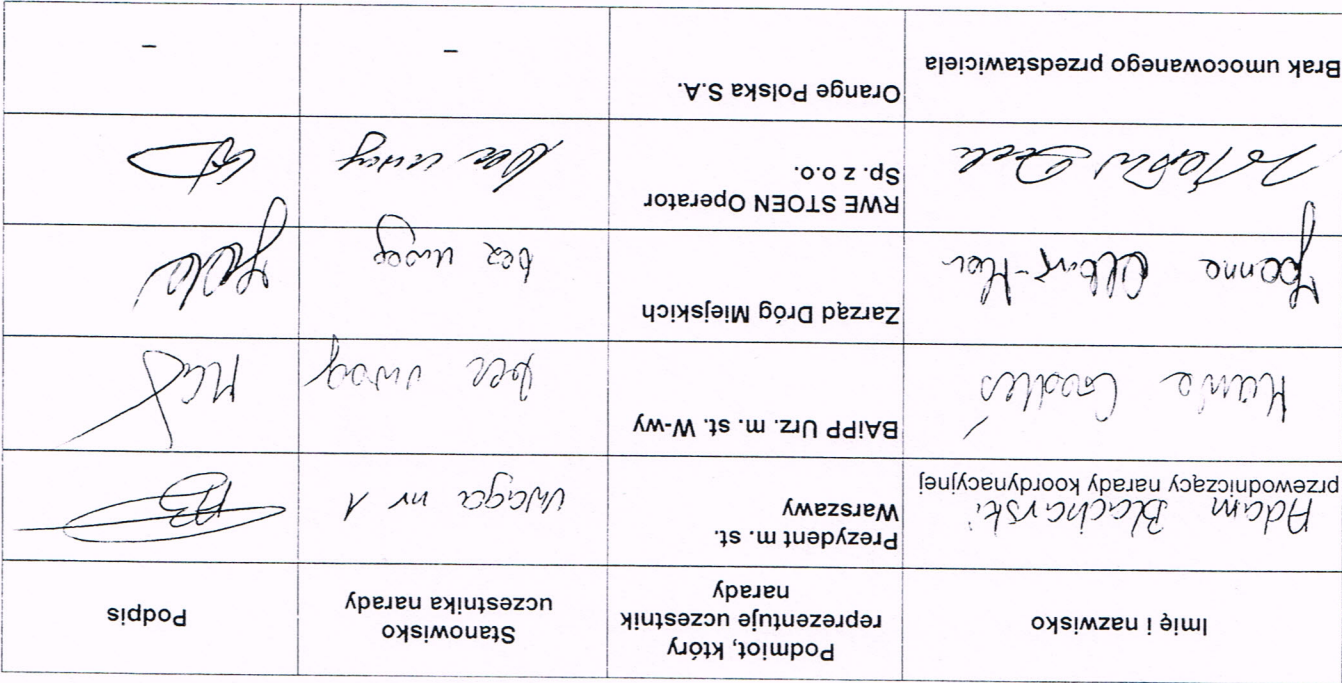 Imię i nazwisko
Podmiot, który
reprezentuje uczestnik
narady
Stanowisko
uczestnika narady
Podpis
Adam Blacharski
przewodniczący narady koordynacyjnej
Prezydent m. st.
Warszawy
uwaga nr 1
BAiPP Urz. m. st. W-wy
bez uwag
Zarząd Dróg Miejskich
bez uwag
RWE STOEN Operator
Sp. z o.o.
bez uwag
Brak umocowanego przedstawiciela
Orange Polska S.A.
-
-